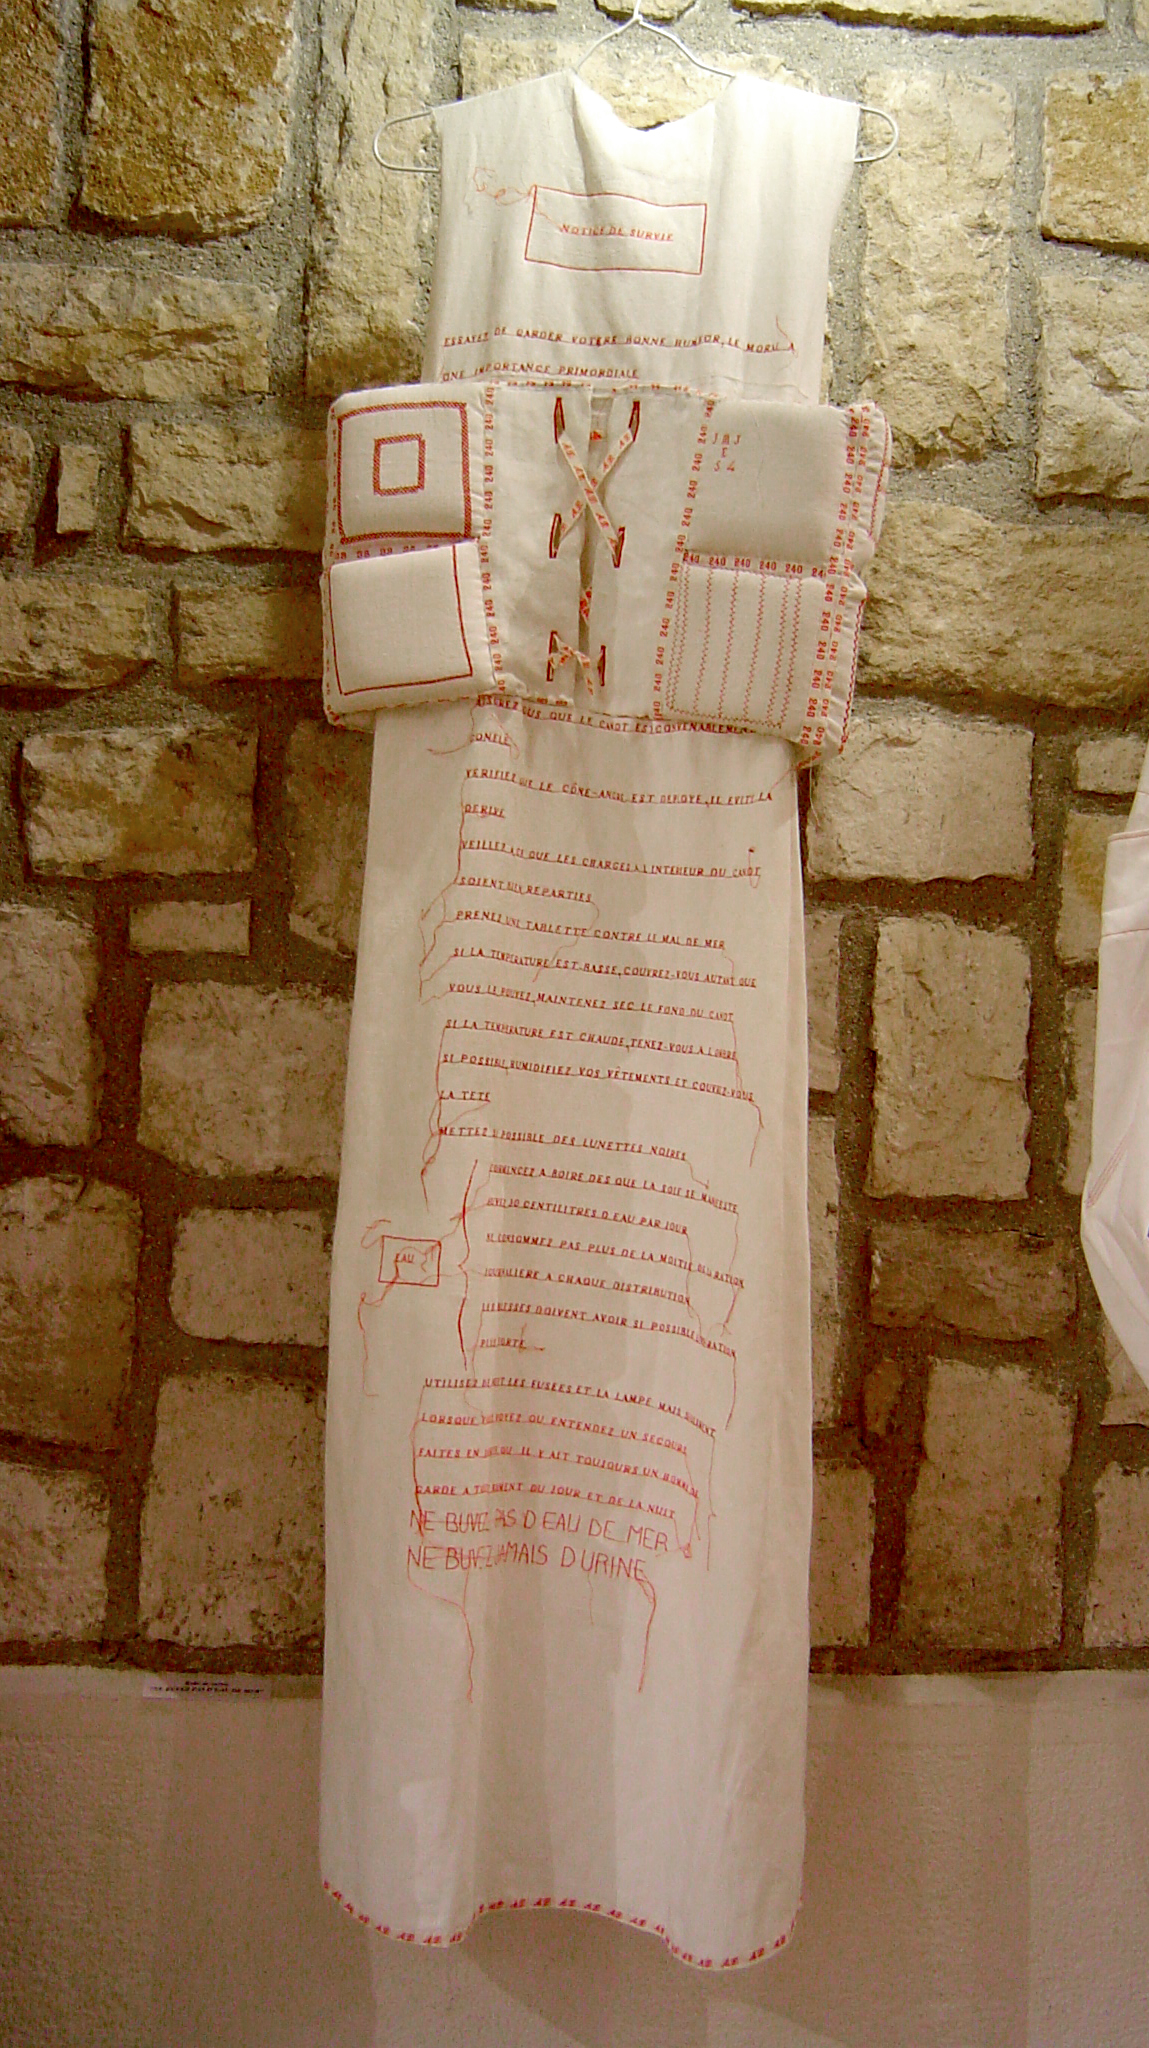 NOTICE DE SURVIE
ESSAYEZ DE GARDER VOTERE BONNE HUMEOR, LE MORAL A
UNE IMPORTANCE PRIMORDIALE
240 240 240 240 240
J M J
E
S 4
240 240 240 240 240
QUE LE CANOT EST CONVENABLEMENT
GONFLE
VERIFIEZ QUE LE CÔNE-ANCRE EST DEPLOYE, IL EVITE LA
DERIVE
VEILLEZ A CE QUE LES CHARGES A L INTERIEUR DU CANOT
SOIENT BIEN REPARTIES
PRENEZ UNE TABLETTE CONTRE LE MAL DE MER
SI LA TEMPERATURE EST BASSE, COUVREZ-VOUS AUTANT QUE
VOUS LE POUVEZ, MAINTENEZ SEC LE FOND DU CANOT
SI LA TEMPERATURE EST CHAUDE, TENEZ-VOUS A L OMBRE
SI POSSIBLE, HUMIDIFIEZ VOS VÊTEMENTS ET COUVEZ-VOUS
LA TETE
METTEZ SI POSSIBLE DES LUNETTES NOIRES
COMMENCEZ A BOIRE DES QUE LA SOIF SE MANIFESTE
BUVEZ 50 CENTILITRES D EAU PAR JOUR
EAU
NE CONSOMMEZ PAS PLUS DE LA MOITIE DE LA RATION
JOURNALIERE A CHAQUE DISTRIBUTION
LES BLESSES DOIVENT AVOIR SI POSSIBLE UNE RATION
PLUS FORTE
UTILISEZ LES FUSEES ET LA LAMPE MAIS SEULEMENT
LORSQUE VOUS VOYEZ OU ENTENDEZ UN SECOURS
FAITES EN SORTE QU IL Y AIT TOUJOURS UN HOMME DE
GARDE A TOUT MOMENT DU JOUR ET DE LA NUIT
NE BUVEZ PAS D EAU DE MER
NE BUVEZ JAMAIS D URINE
"NE BUVEZ PAS D'EAU DE MER"